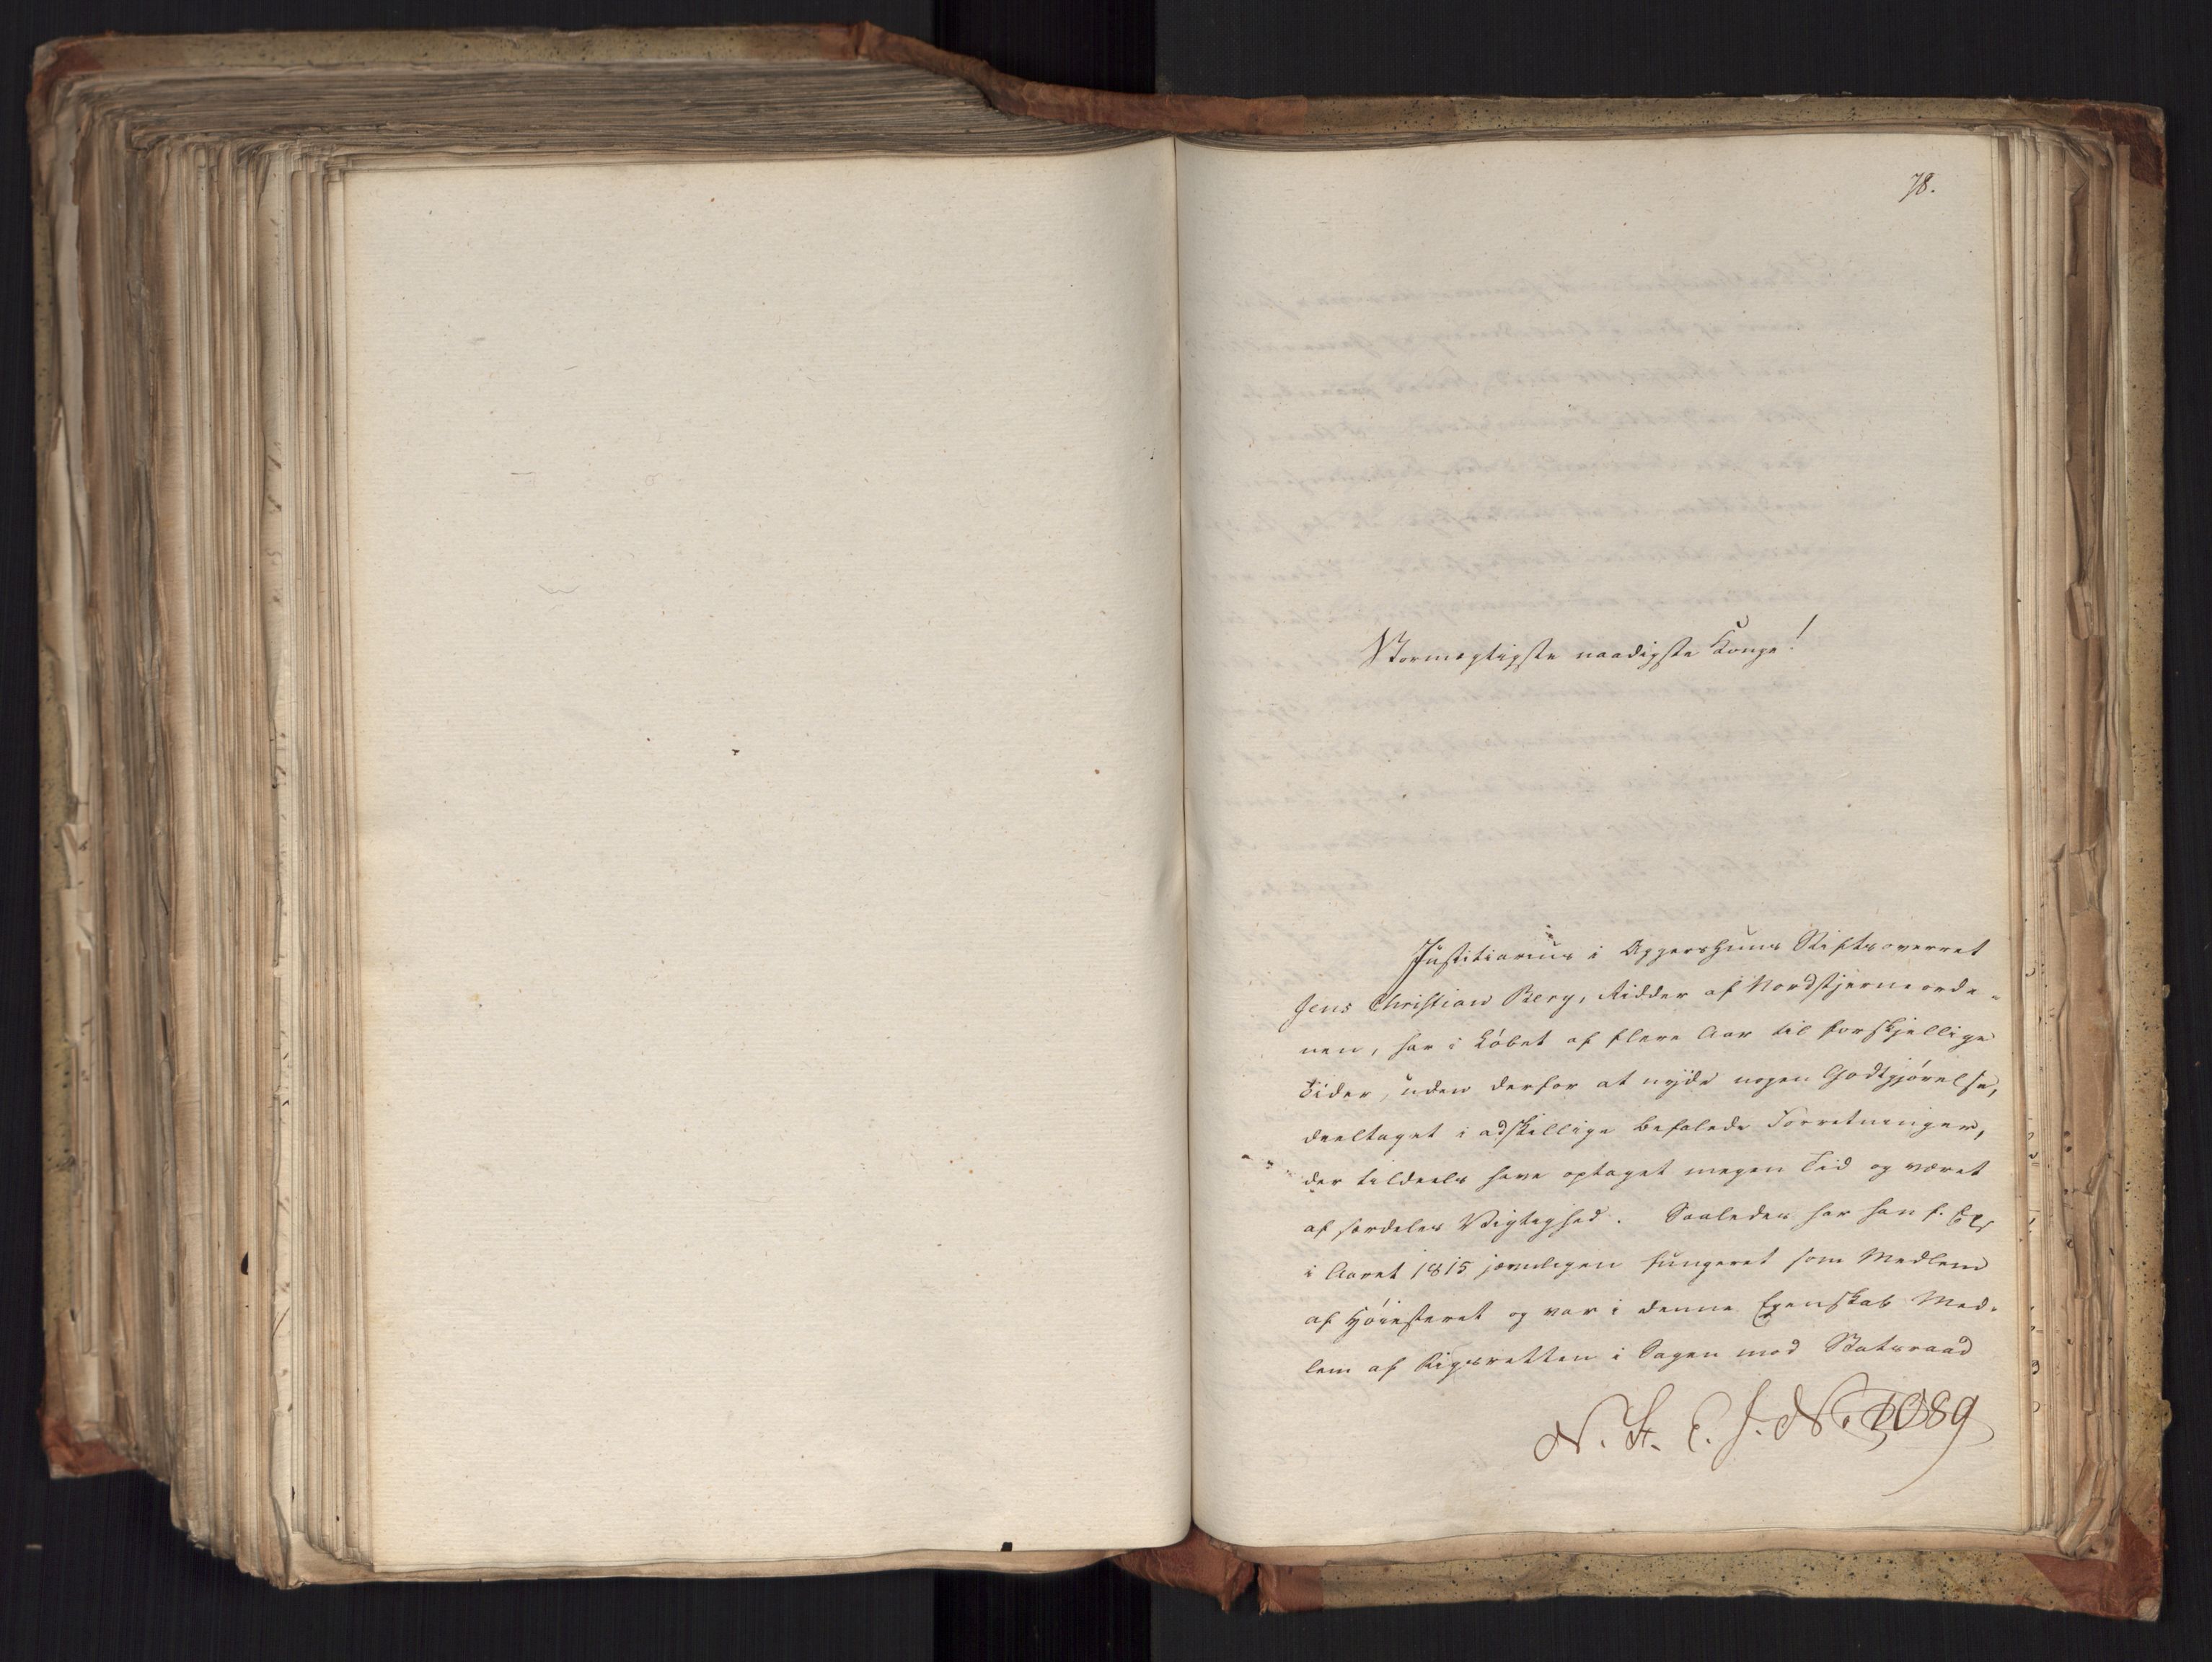 78.
Stormægtigste naadigste Konge!
Justitiarius i Aggershuus Stiftsoverret
Jens Christian Berg, Ridder af Nordstjerneorde-
nen, har i Løbet af flere Aar til forskjellige
Tider, uden derfor at nyde nogen Godtgjørelse,
deeltaget i adskillige befalede Forretninger,
der tildeels have optaget megen Tid og været
af særdeles Vigtighed. Saaledes har han f. Ex
i Aaret 1815 jævnligen fungeret som Medlem
af Høiesteret og var i denne Egenskab Med-
lem af Rigsretten i Sagen mod Statsraad
N. St. E. J. No. 1089